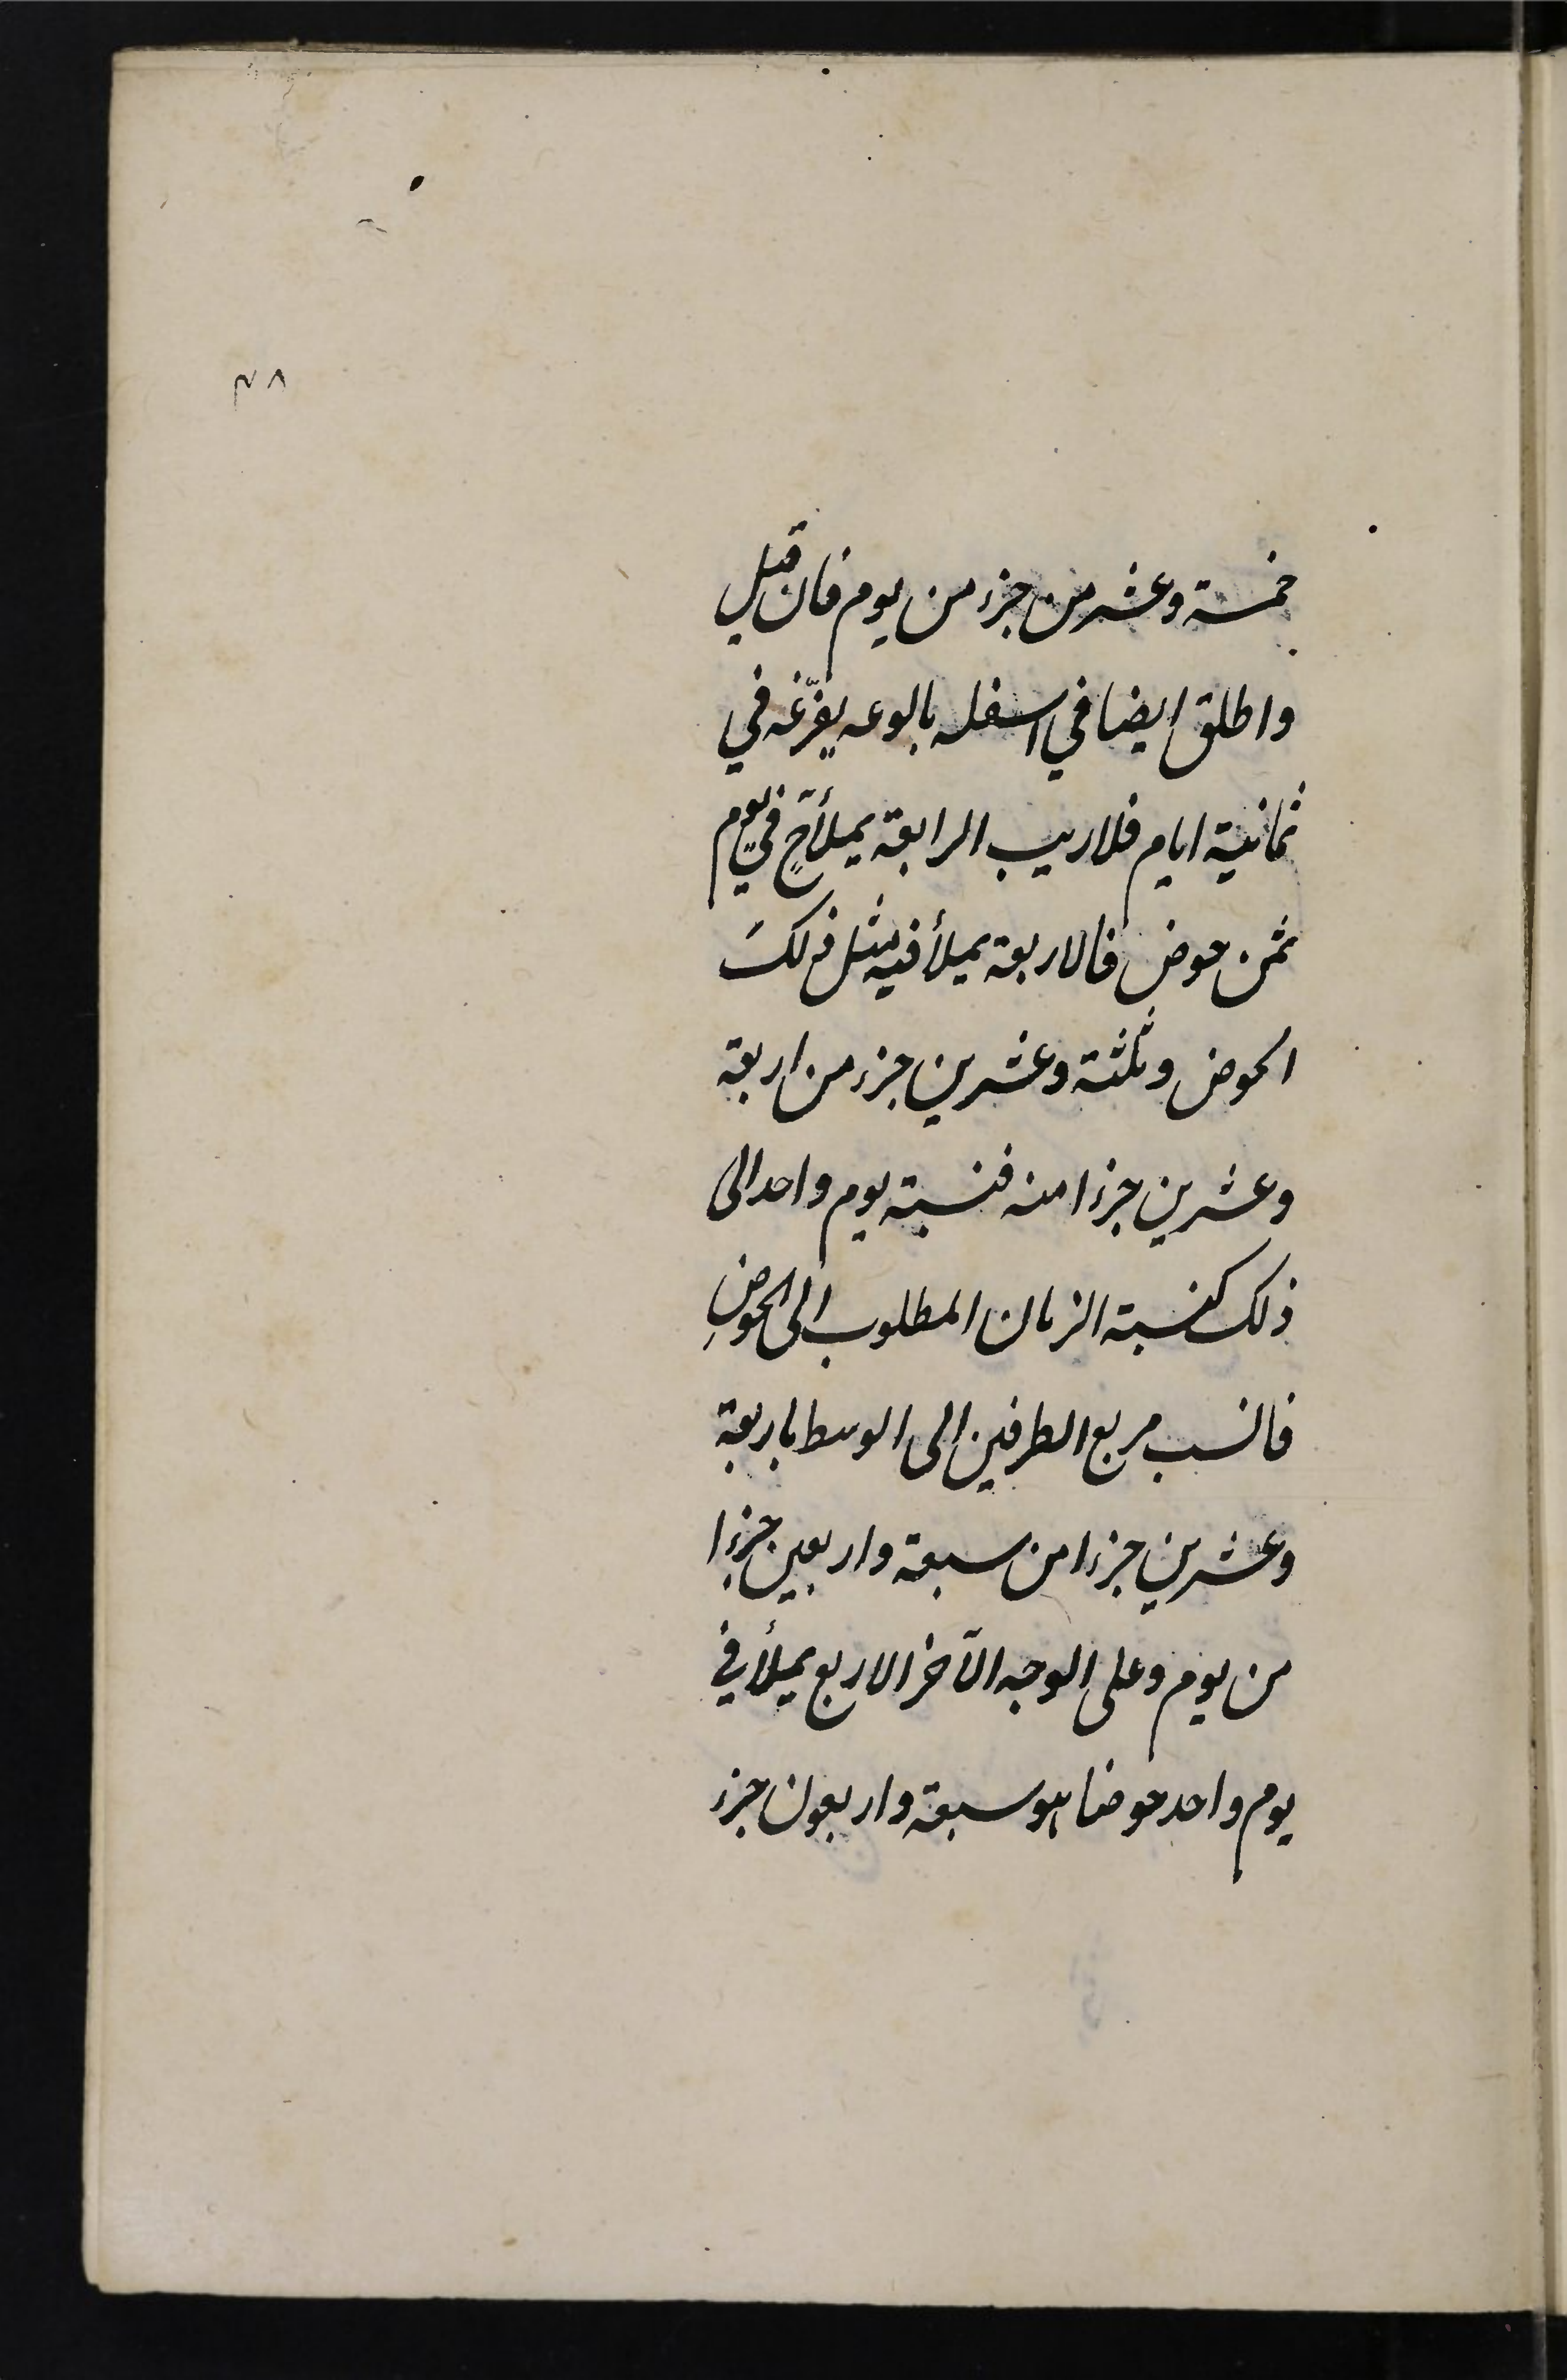 ٤٨
خمسة وعشرين جزء من يوم فان قيل
واطلق ايضا في اسفله بالوعه يفرّغه في
ثمانية ايام فلاريب الرابعة يملأ ح في يوم
ثمن حوض فالاربعة يملأ فيه مثل ذلك
الحوض وثلثة وعشرين جزء من اربعة
وعشرين جزءا منه فنسبة يوم واحد الى
ذلك كنسبة الزمان المطلوب الى الحوض
فانسب مربع الطرفين الى الوسط باربعة
وعشرين جزءا من سبعة واربعين جزءا
من يوم وعلى الوجه الآخر الاربع يملأ في
يوم واحد حوضا هو سبعة واربعون جزء